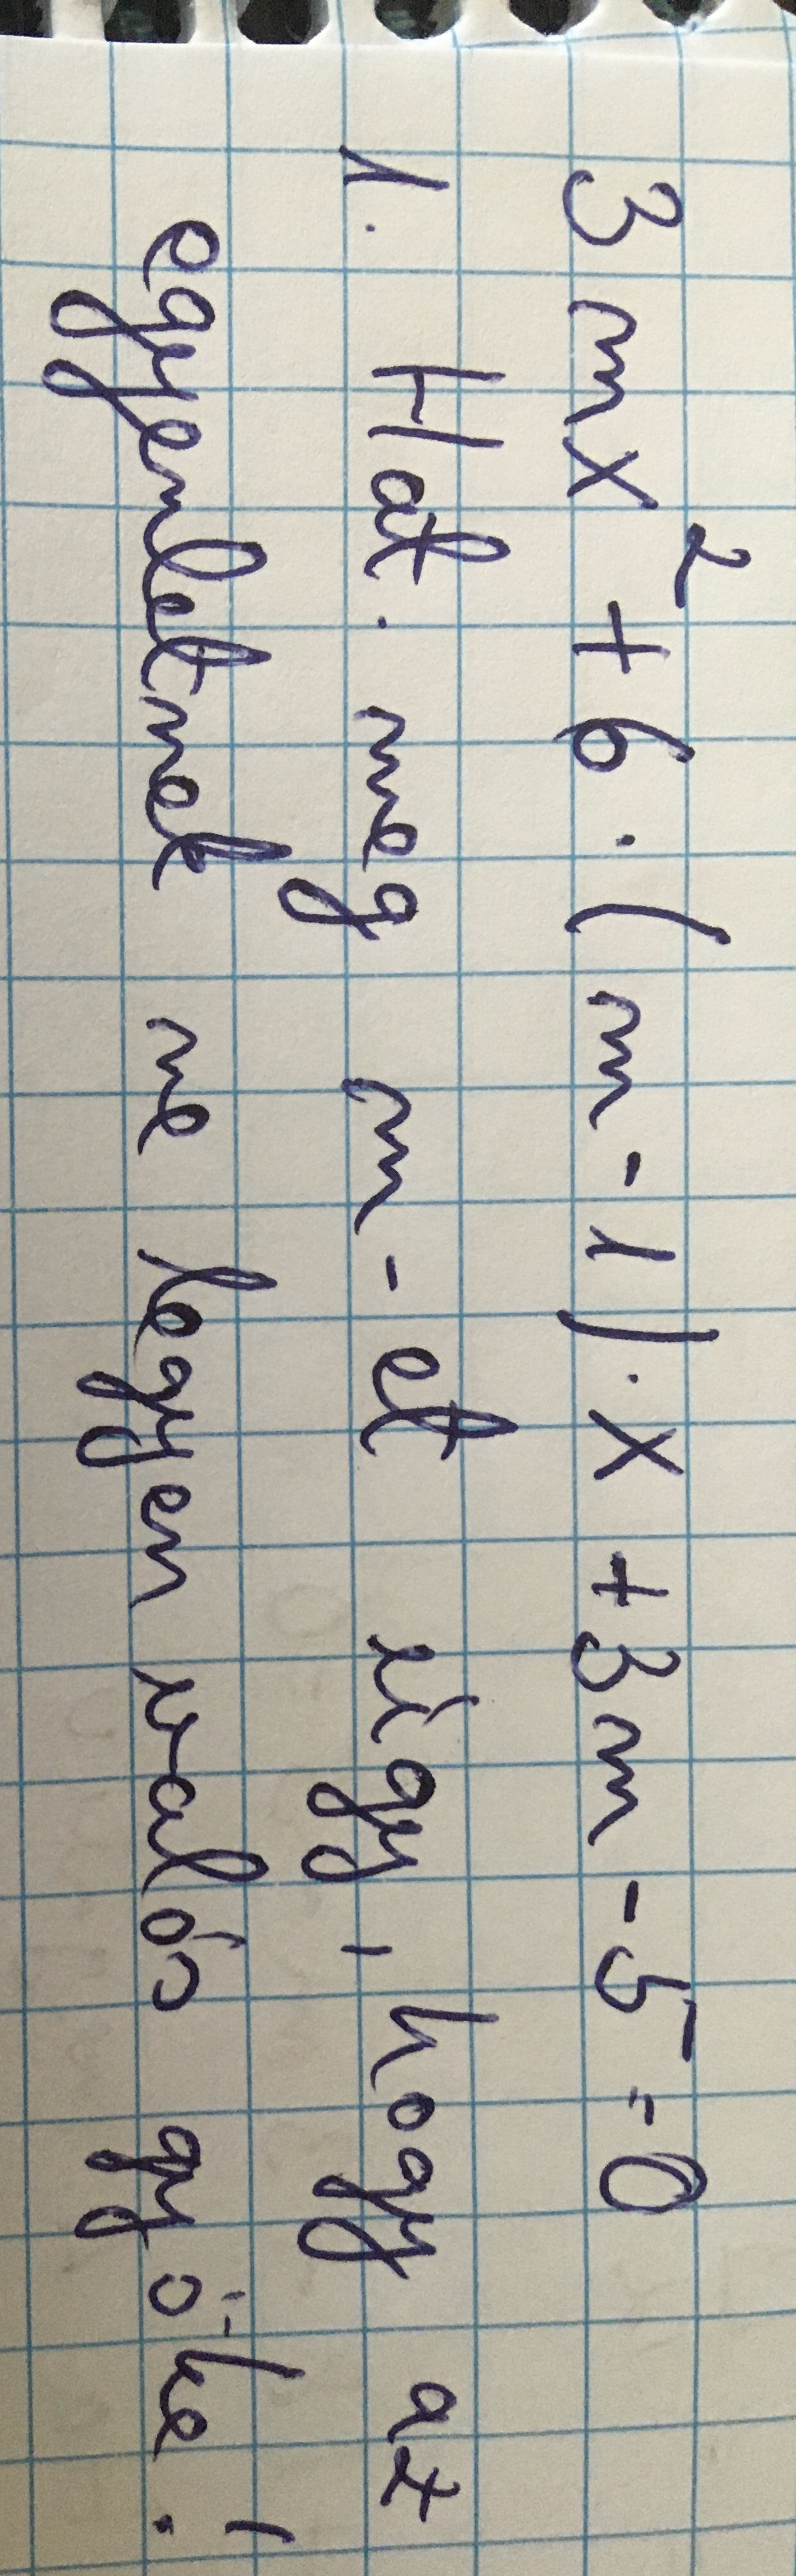 3mx² + 6 · (m - 1) · x + 3m - 5 = 0
1. Hat. meg m-et úgy, hogy az
egyenletnek ne legyen valós gyöke!